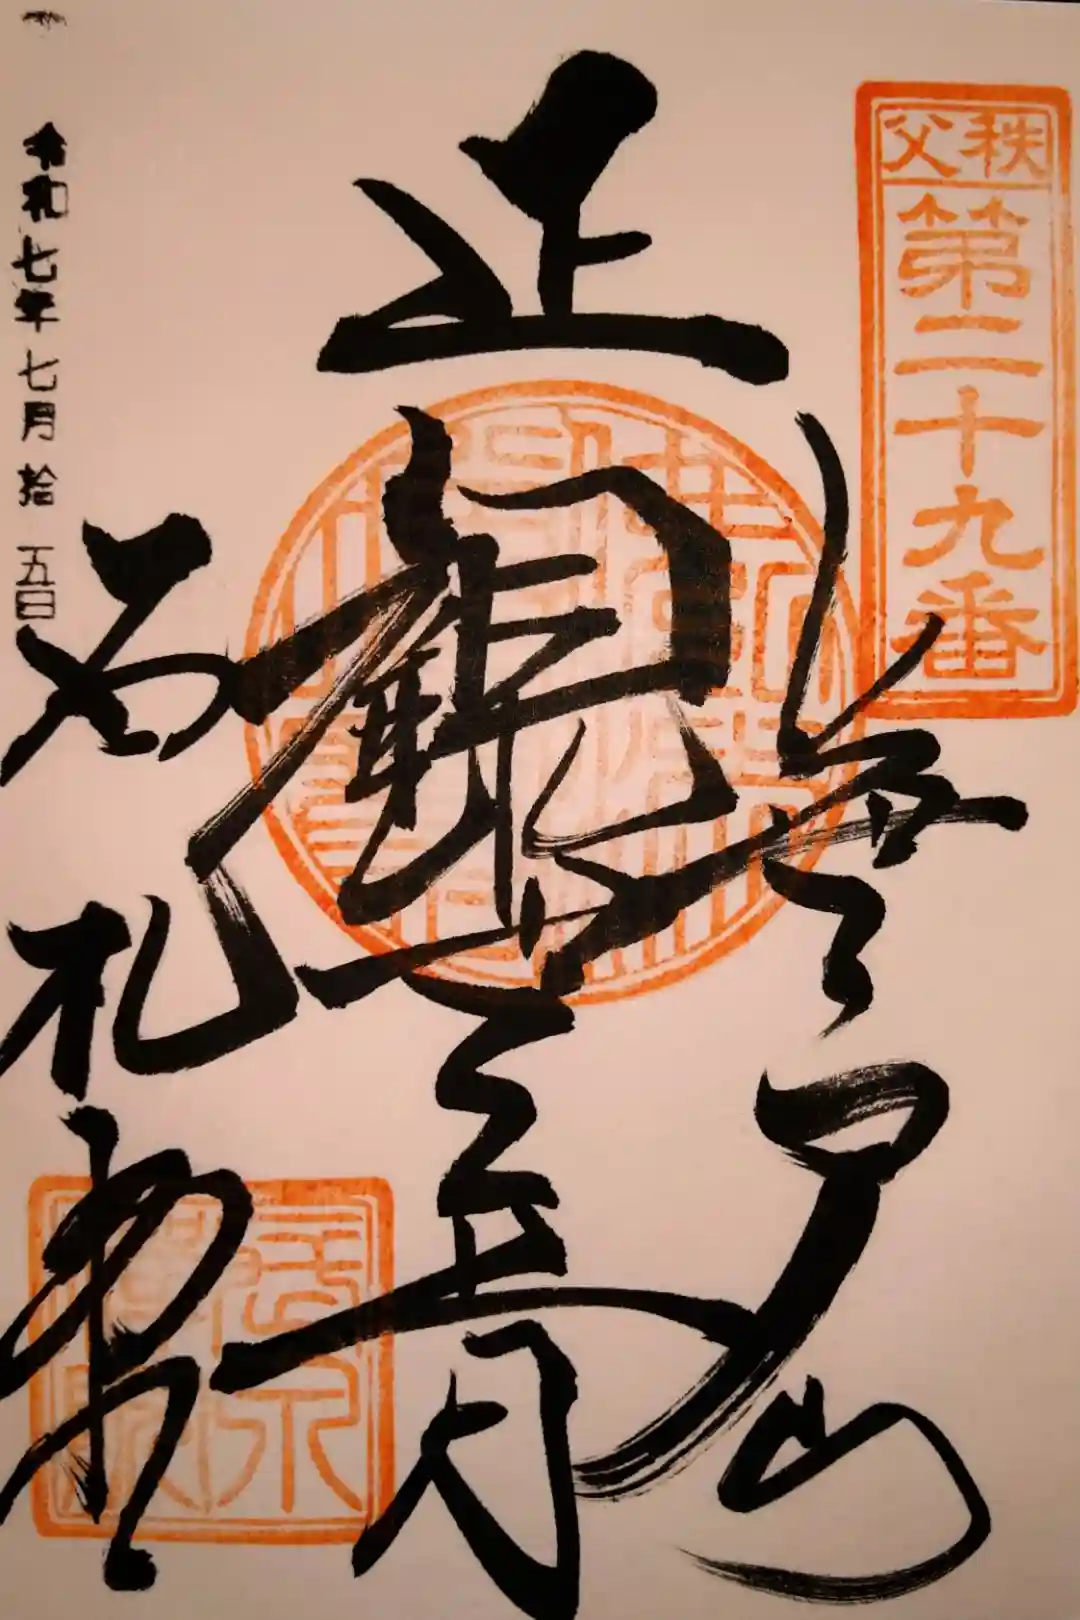 秩父
第二十九番
笹戸山
正観世音
石札堂
令和七年七月拾五日